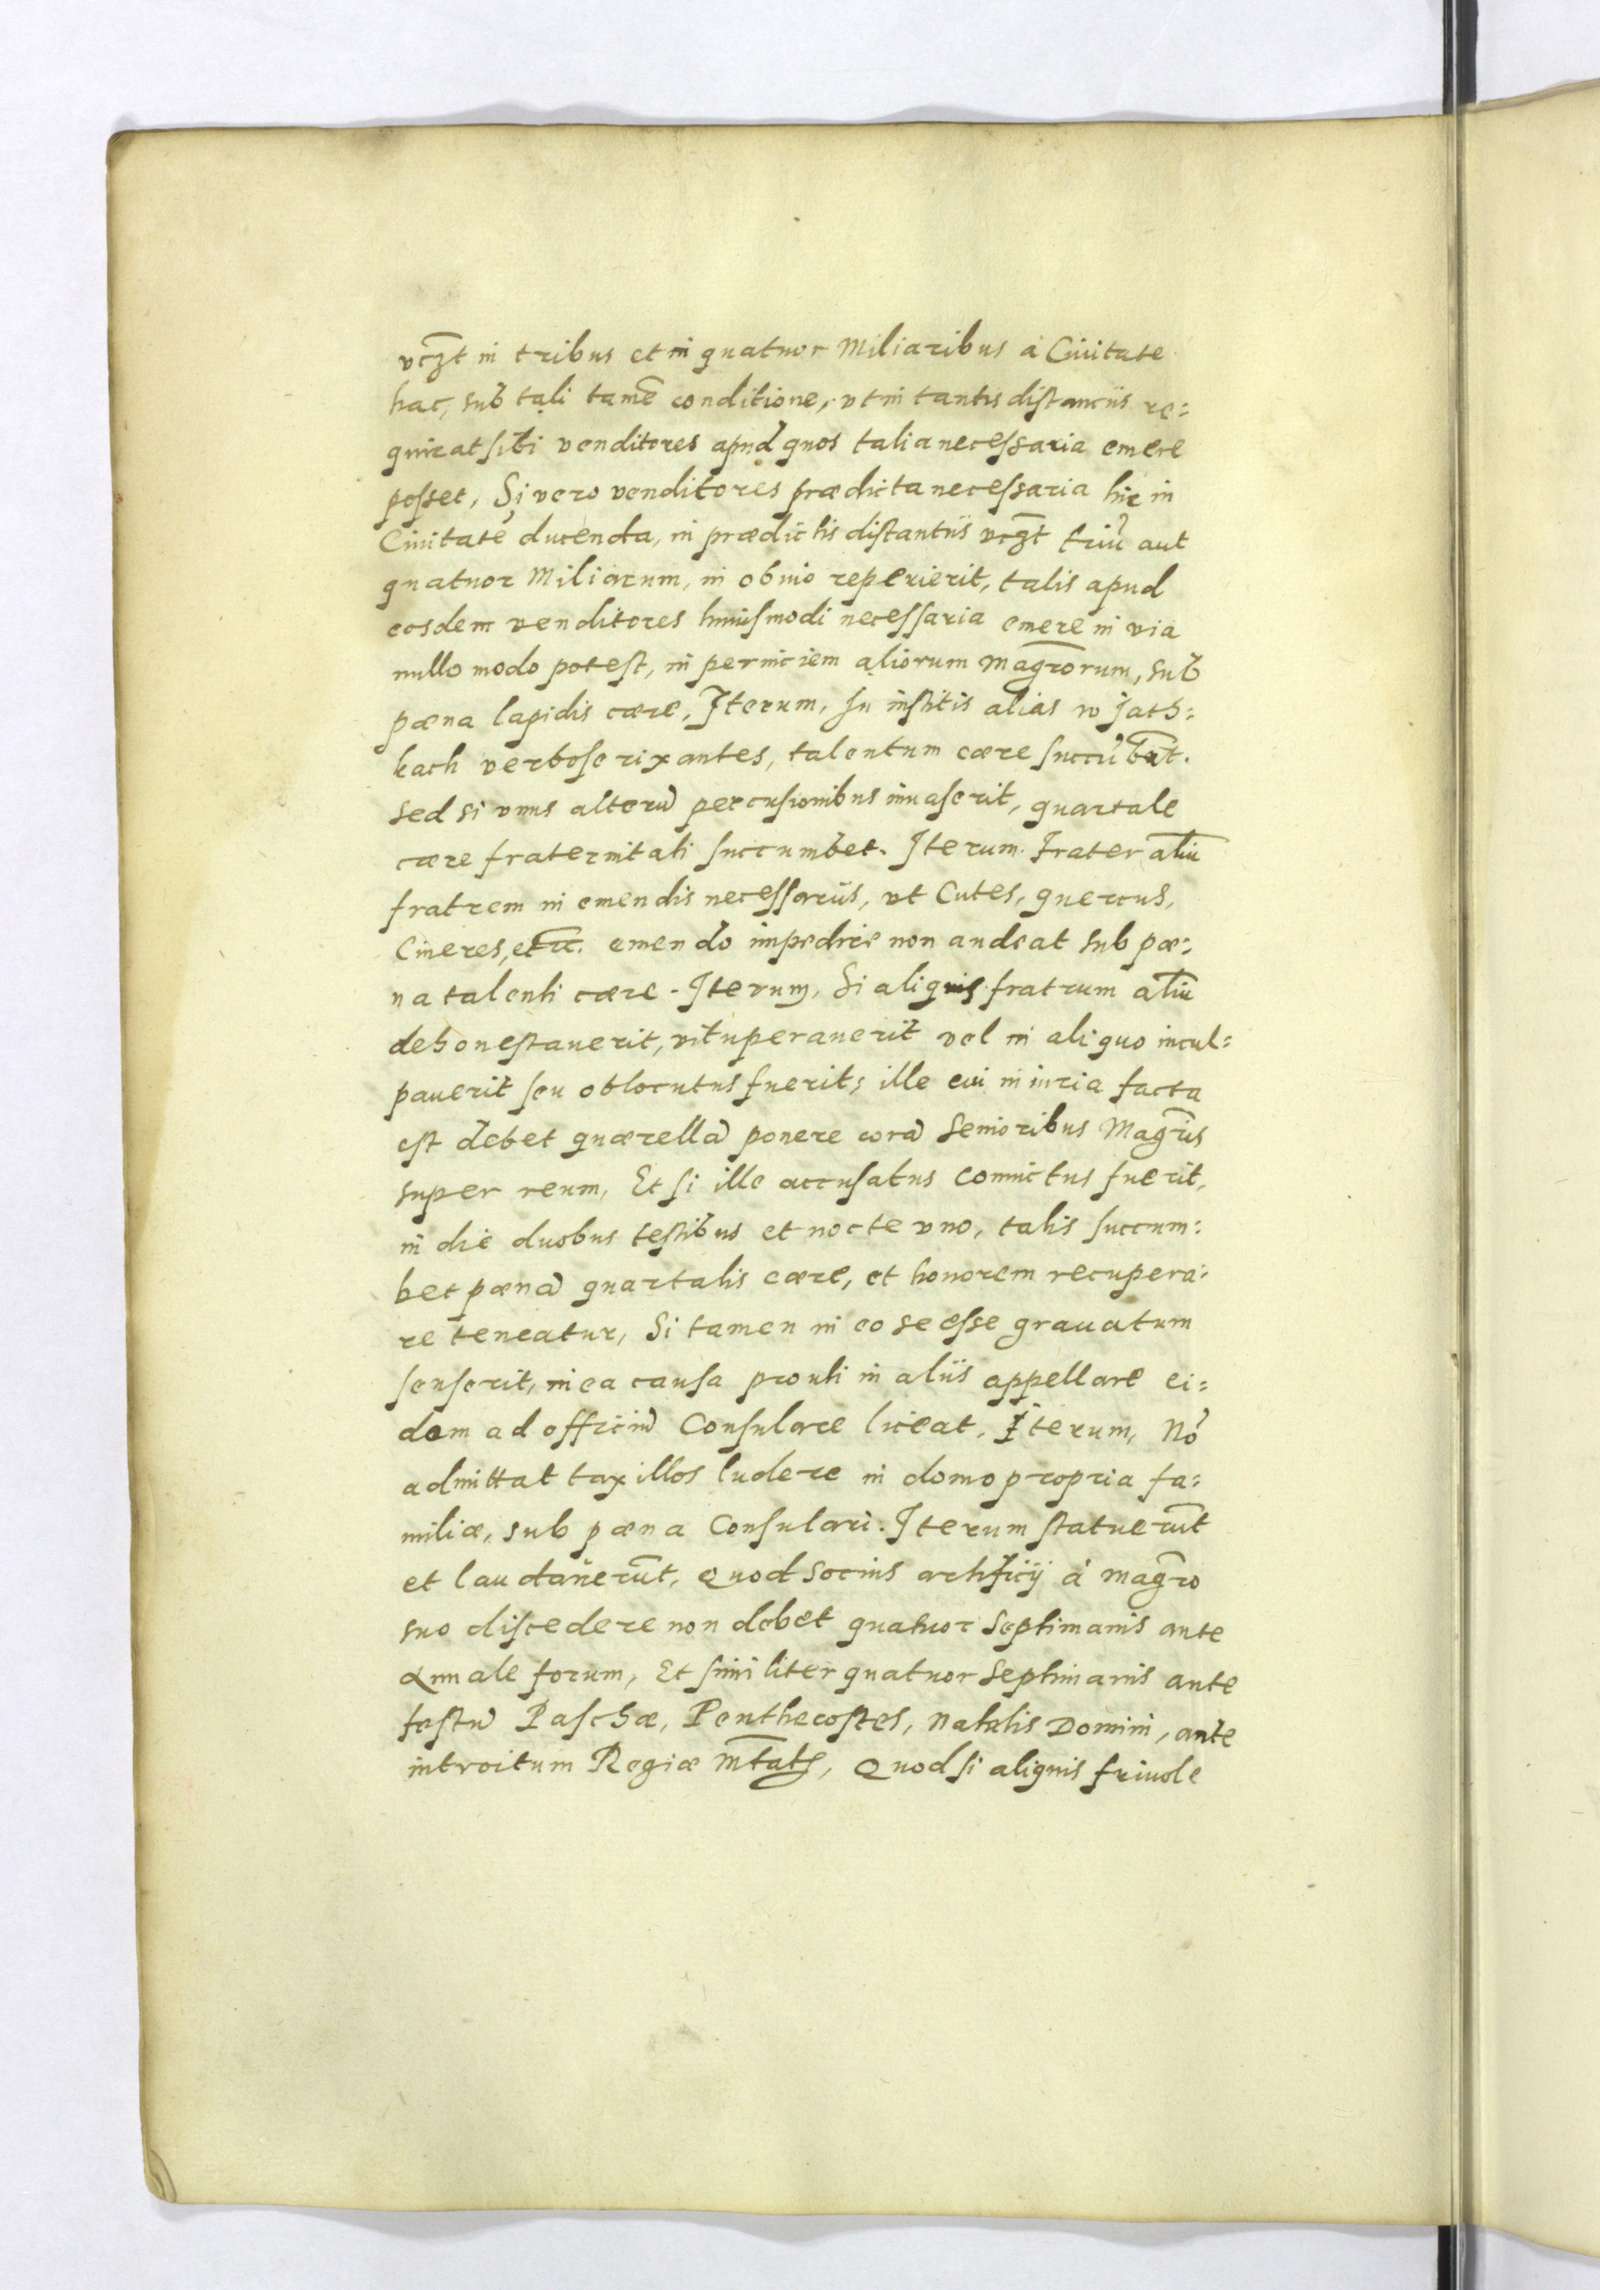 vczt in tribus et in quatuor Miliaribus à Ciuitate
hac, sub tali tamē conditione, vt in tantis distantiis re:
quirat sibi venditores apud quos talia necessaria emere
posset, Si vero venditores prædicta necessaria hic in
Ciuitatē ducenda, in prædictis distantiis vczt triū aut
quatuor Miliarum, in obuio reperierit, talis apud
eosdem venditores huiusmodi necessaria emere in via
nullo modo potest, in perniciem aliorum Magrorum, sub
pæna lapidis cære, Iterum, In institis alias w jath:
kach verbose rixantes, talentum cære succūbāt.
Sed si vnus alterū percusionibus inuaserit, quartale
cære fraternitati succumbet. Iterum. Frater aliū
fratrem in emendis necessariis, vt Cutes, quercus,
Cineres, etc. emendo impedire non audeat sub pæ:
na talenti cære. Iterum, Si aliquis fratrum aliū
dehonestauerit, vituperauerit vel in aliquo incul:
pauerit seu oblocutus fuerit; ille cui iniuria facta
est debet quærellā ponere corā Senioribus Magris
super reum, Et si ille accusatus conuictus fuerit,
in die duobus testibus et nocte vno, talis succum:
bet pænā quartalis cære, et honorem recupera:
re teneatur, Si tamen in eo se esse grauatum
senserit, in ea causa prouti in aliis appellare ei:
dem ad officiū Consulare liceat. Iterum, Nō
admittat taxillos ludere in domo propria fa:
miliæ, sub pæna Consulari. Iterum statuerūt
et laudauerūt, Quod socius artificij à magro
suo discedere non debet quatuor Septimanis ante
Annale forum, Et similiter quatuor Septimanis ante
festū Paschæ, Penthecostes, Natalis Domini, ante
introitum Regiæ Mtatis, Quod si aliquis friuole